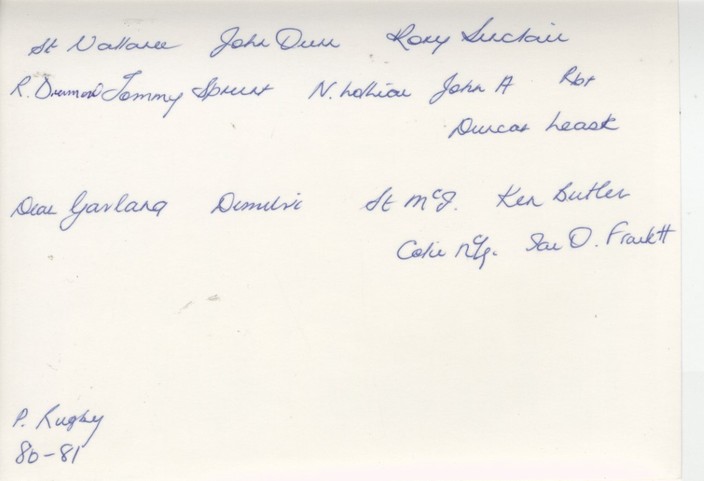 St Wallace John Dunn Rory Sinclair
R. Drumond Tommy Sprust N. Lothian John A Rbt
Duncan Leask
Dean Garland Dimitri St McJ. Ken Butler
Colin Ian D.
P. Rugby
80-81